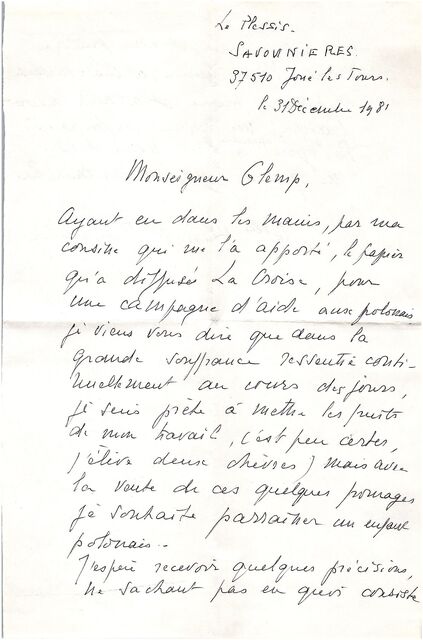 Le Plessis.
SAVONNIERES.
37510 Joué les Tours.
le 31 Décembre 1981
Monseigneur Glemp,
Ayant eu dans les mains, par ma
cousine qui me l'a apporté, le papier
qu'a diffusé La Croix, pour
une campagne d'aide aux polonais
je viens vous dire que dans la
grande souffrance ressentie conti-
nuellement au cours des jours,
je suis prête à mettre les fruits
de mon travail, (c'est peu certes,
j'élève deux chèvres) mais avec
la vente de ces quelques fromages
je souhaite parrainer un enfant
polonais..
J'espère recevoir quelques précisions,
ne sachant pas en quoi consiste